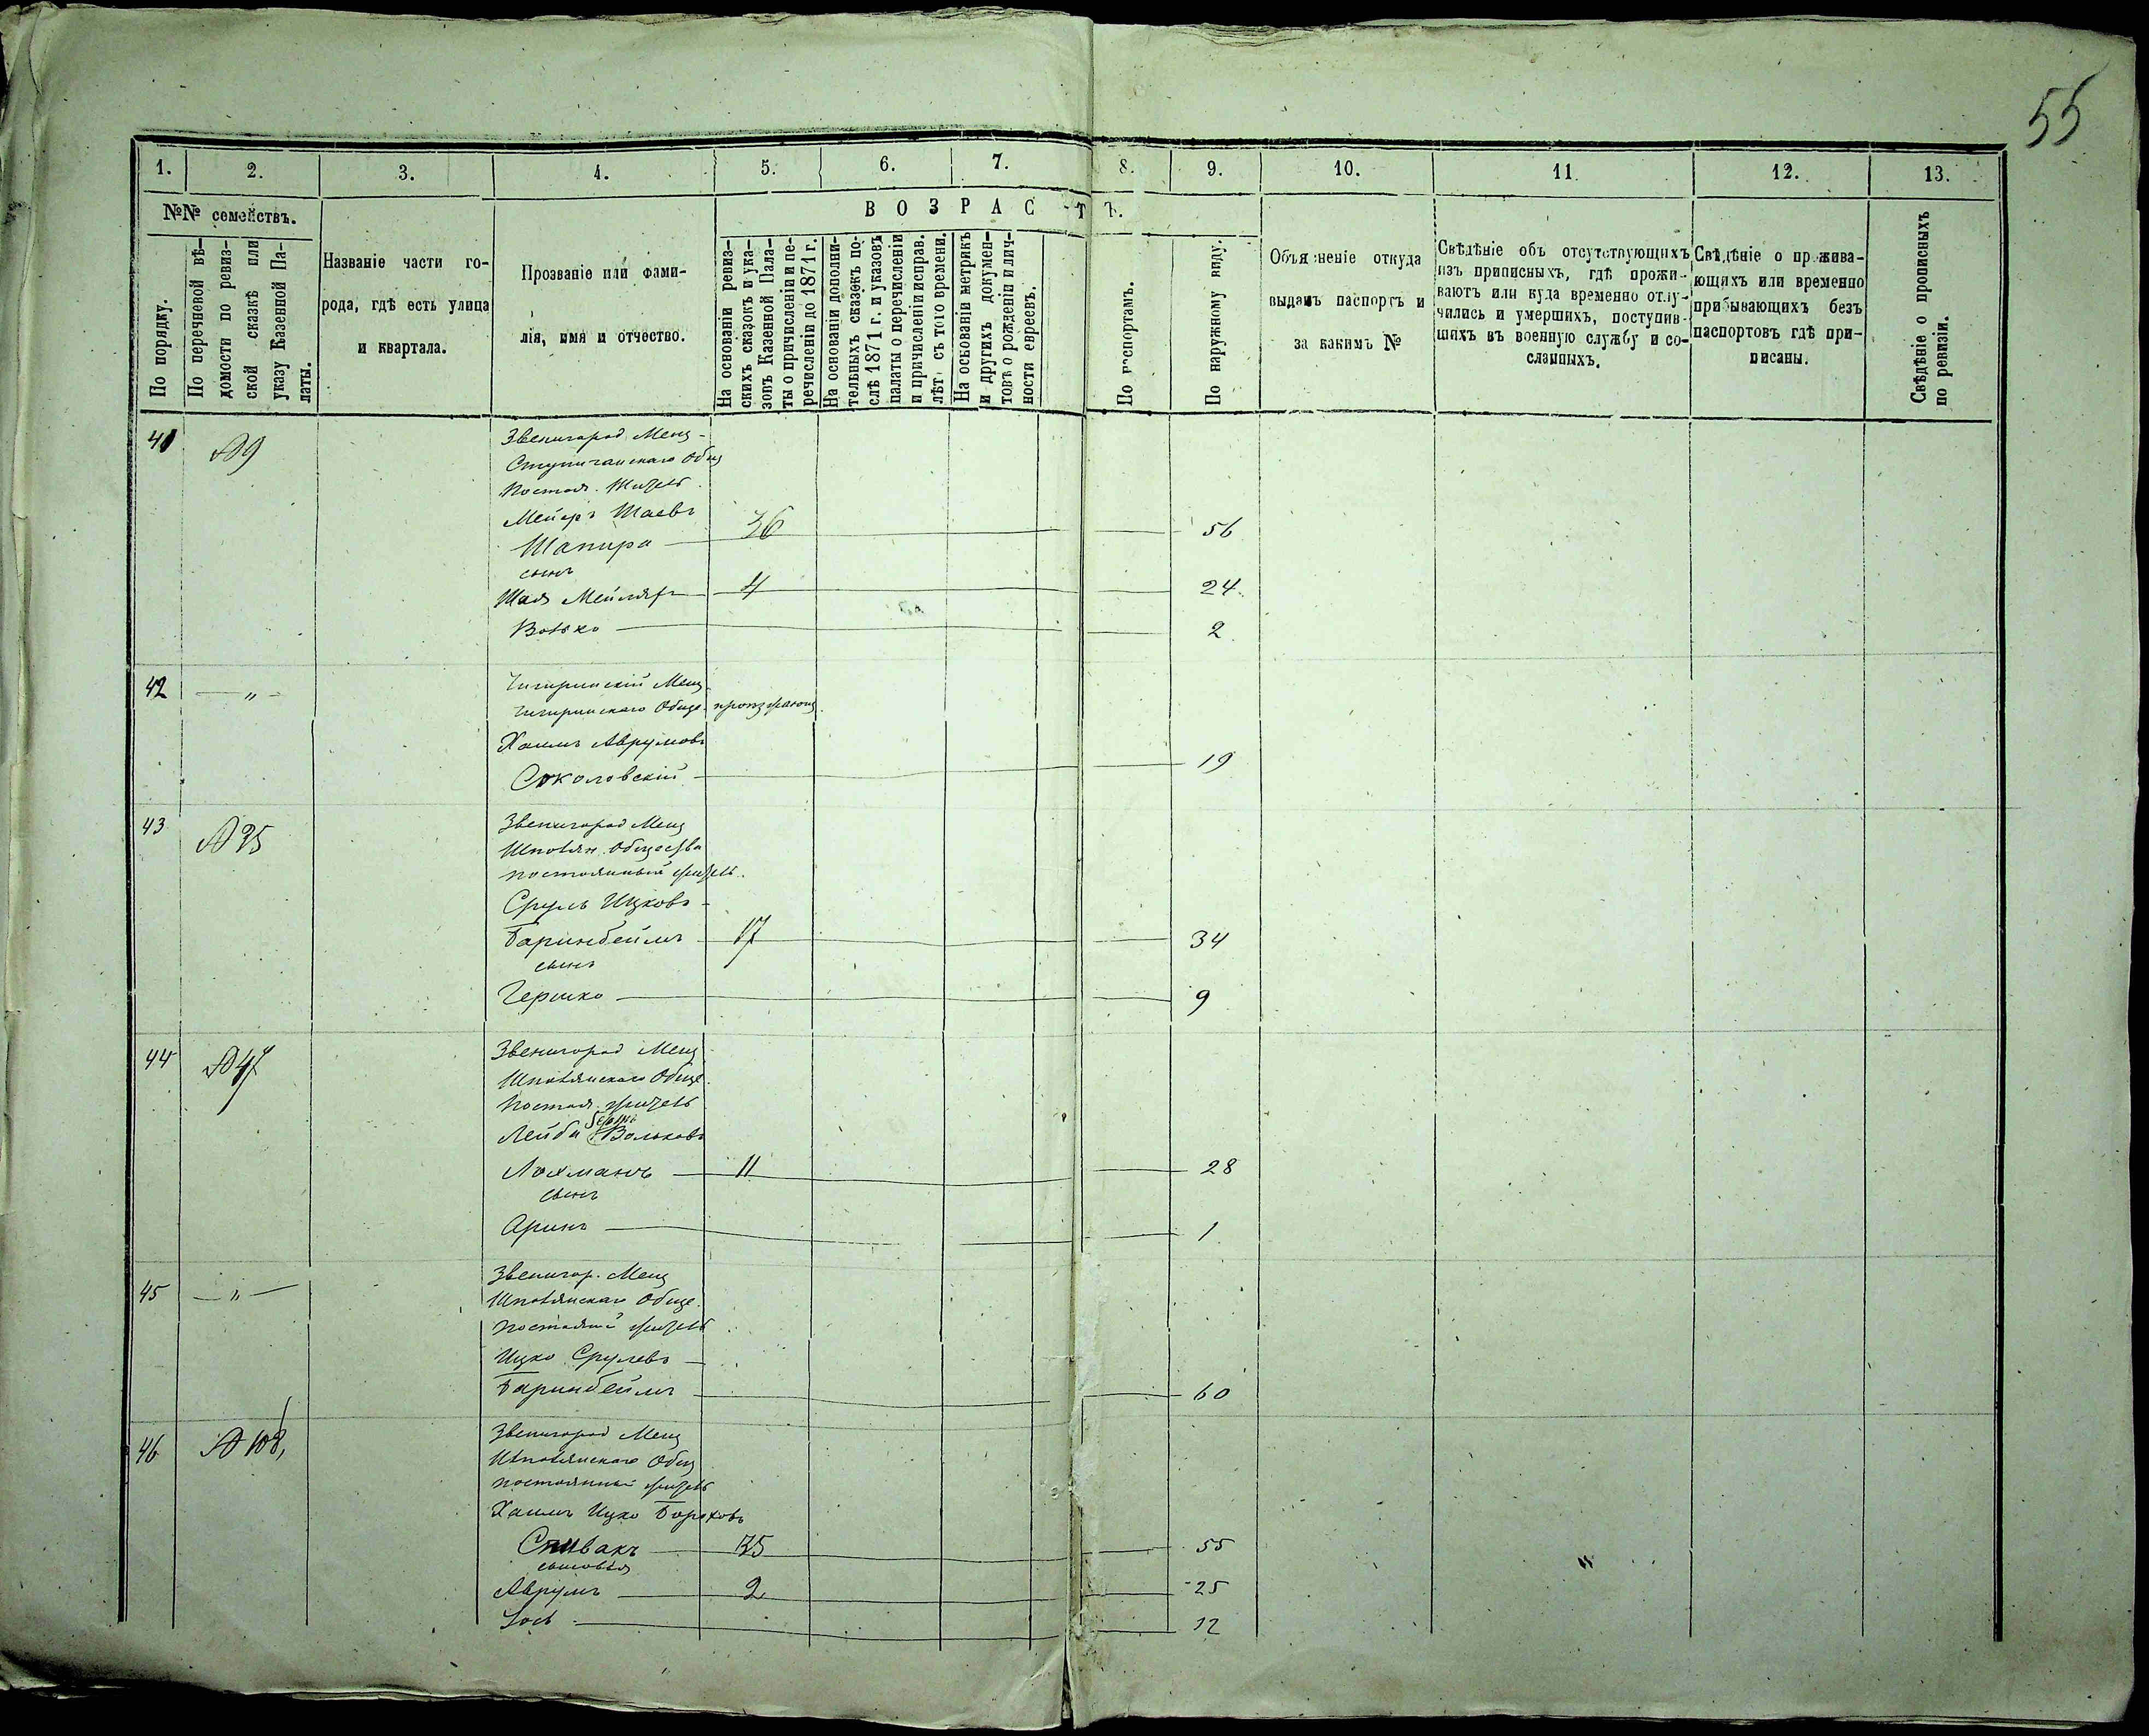 55
1. 2. 3. 4. 5. 6. 7. 8. 9. 10. 11. 12. 13.
№№ семействъ.
По порядку.
По перечневой вѣ-
домости по ревиз-
ской сказкѣ или
указу Казенной Па-
латы.
Названіе части го-
рода, гдѣ есть улица
и квартала.
Прозваніе или фами-
лія, имя и отчество.
ВОЗРАСТЪ.
На основаніи ревиз-
скихъ сказокъ и ука-
зовъ Казенной Пала-
ты о причисленіи и пе-
речисленіи до 1871 г.
На основаніи дополни-
тельныхъ сказокъ по-
слѣ 1871 г. и указовъ
палаты о перечисленіи
и причисленіи исправ.
лѣт. съ того времени.
На основаніи метрикъ
и другихъ докумен-
товъ о рожденіи и лич-
ности евреевъ.
По паспортамъ.
По наружному виду.
Объясненіе откуда
выданъ паспортъ и
за какимъ №
Свѣдѣніе объ отсутствующихъ
изъ приписныхъ, гдѣ прожи-
ваютъ или куда временно отлу-
чились и умершихъ, поступив-
шихъ въ военную службу и со-
сланныхъ.
Свѣдѣніе о прожива-
ющихъ или временно
прибывающихъ безъ
паспортовъ гдѣ при-
писаны.
Свѣдѣніе о прописныхъ
по ревизіи.
41 №9 Звенигород. Мещ-
Общ
Постоя. Житель
Мейеръ Шаевъ
Шапира 36 56
сынъ
Шая 4 24
Волько 2
42 — " — Чигиринскій Мещ
Чигиринскаго Обще. прожжающ.
Хаимъ Аврумовъ
Соколовскій 19
43 №35 Звенигород Мещ
Шполян. Общества
постоянный житель.
Сруль Ицковъ
Баринбеймъ 17 34
сынъ
Гершко 9
44 №47 Звенигород Мещ
Шполянскаго Обще.
Постоя. житель
Лейба Вольковъ
Лохманъ 11 28
сынъ
Аринъ 1
45 — " — Звенигор. Мещ
Шполянскаго Обще.
постоянный житель
Ицко Срулевъ
Баринбеймъ 60
46 №108, Звенигород Мещ
Шполянскаго Общ
постоянный житель
Хаимъ Ицко Борховъ
Спивакъ 35 55
сыновья
Аврумъ 2 25
Іось 12